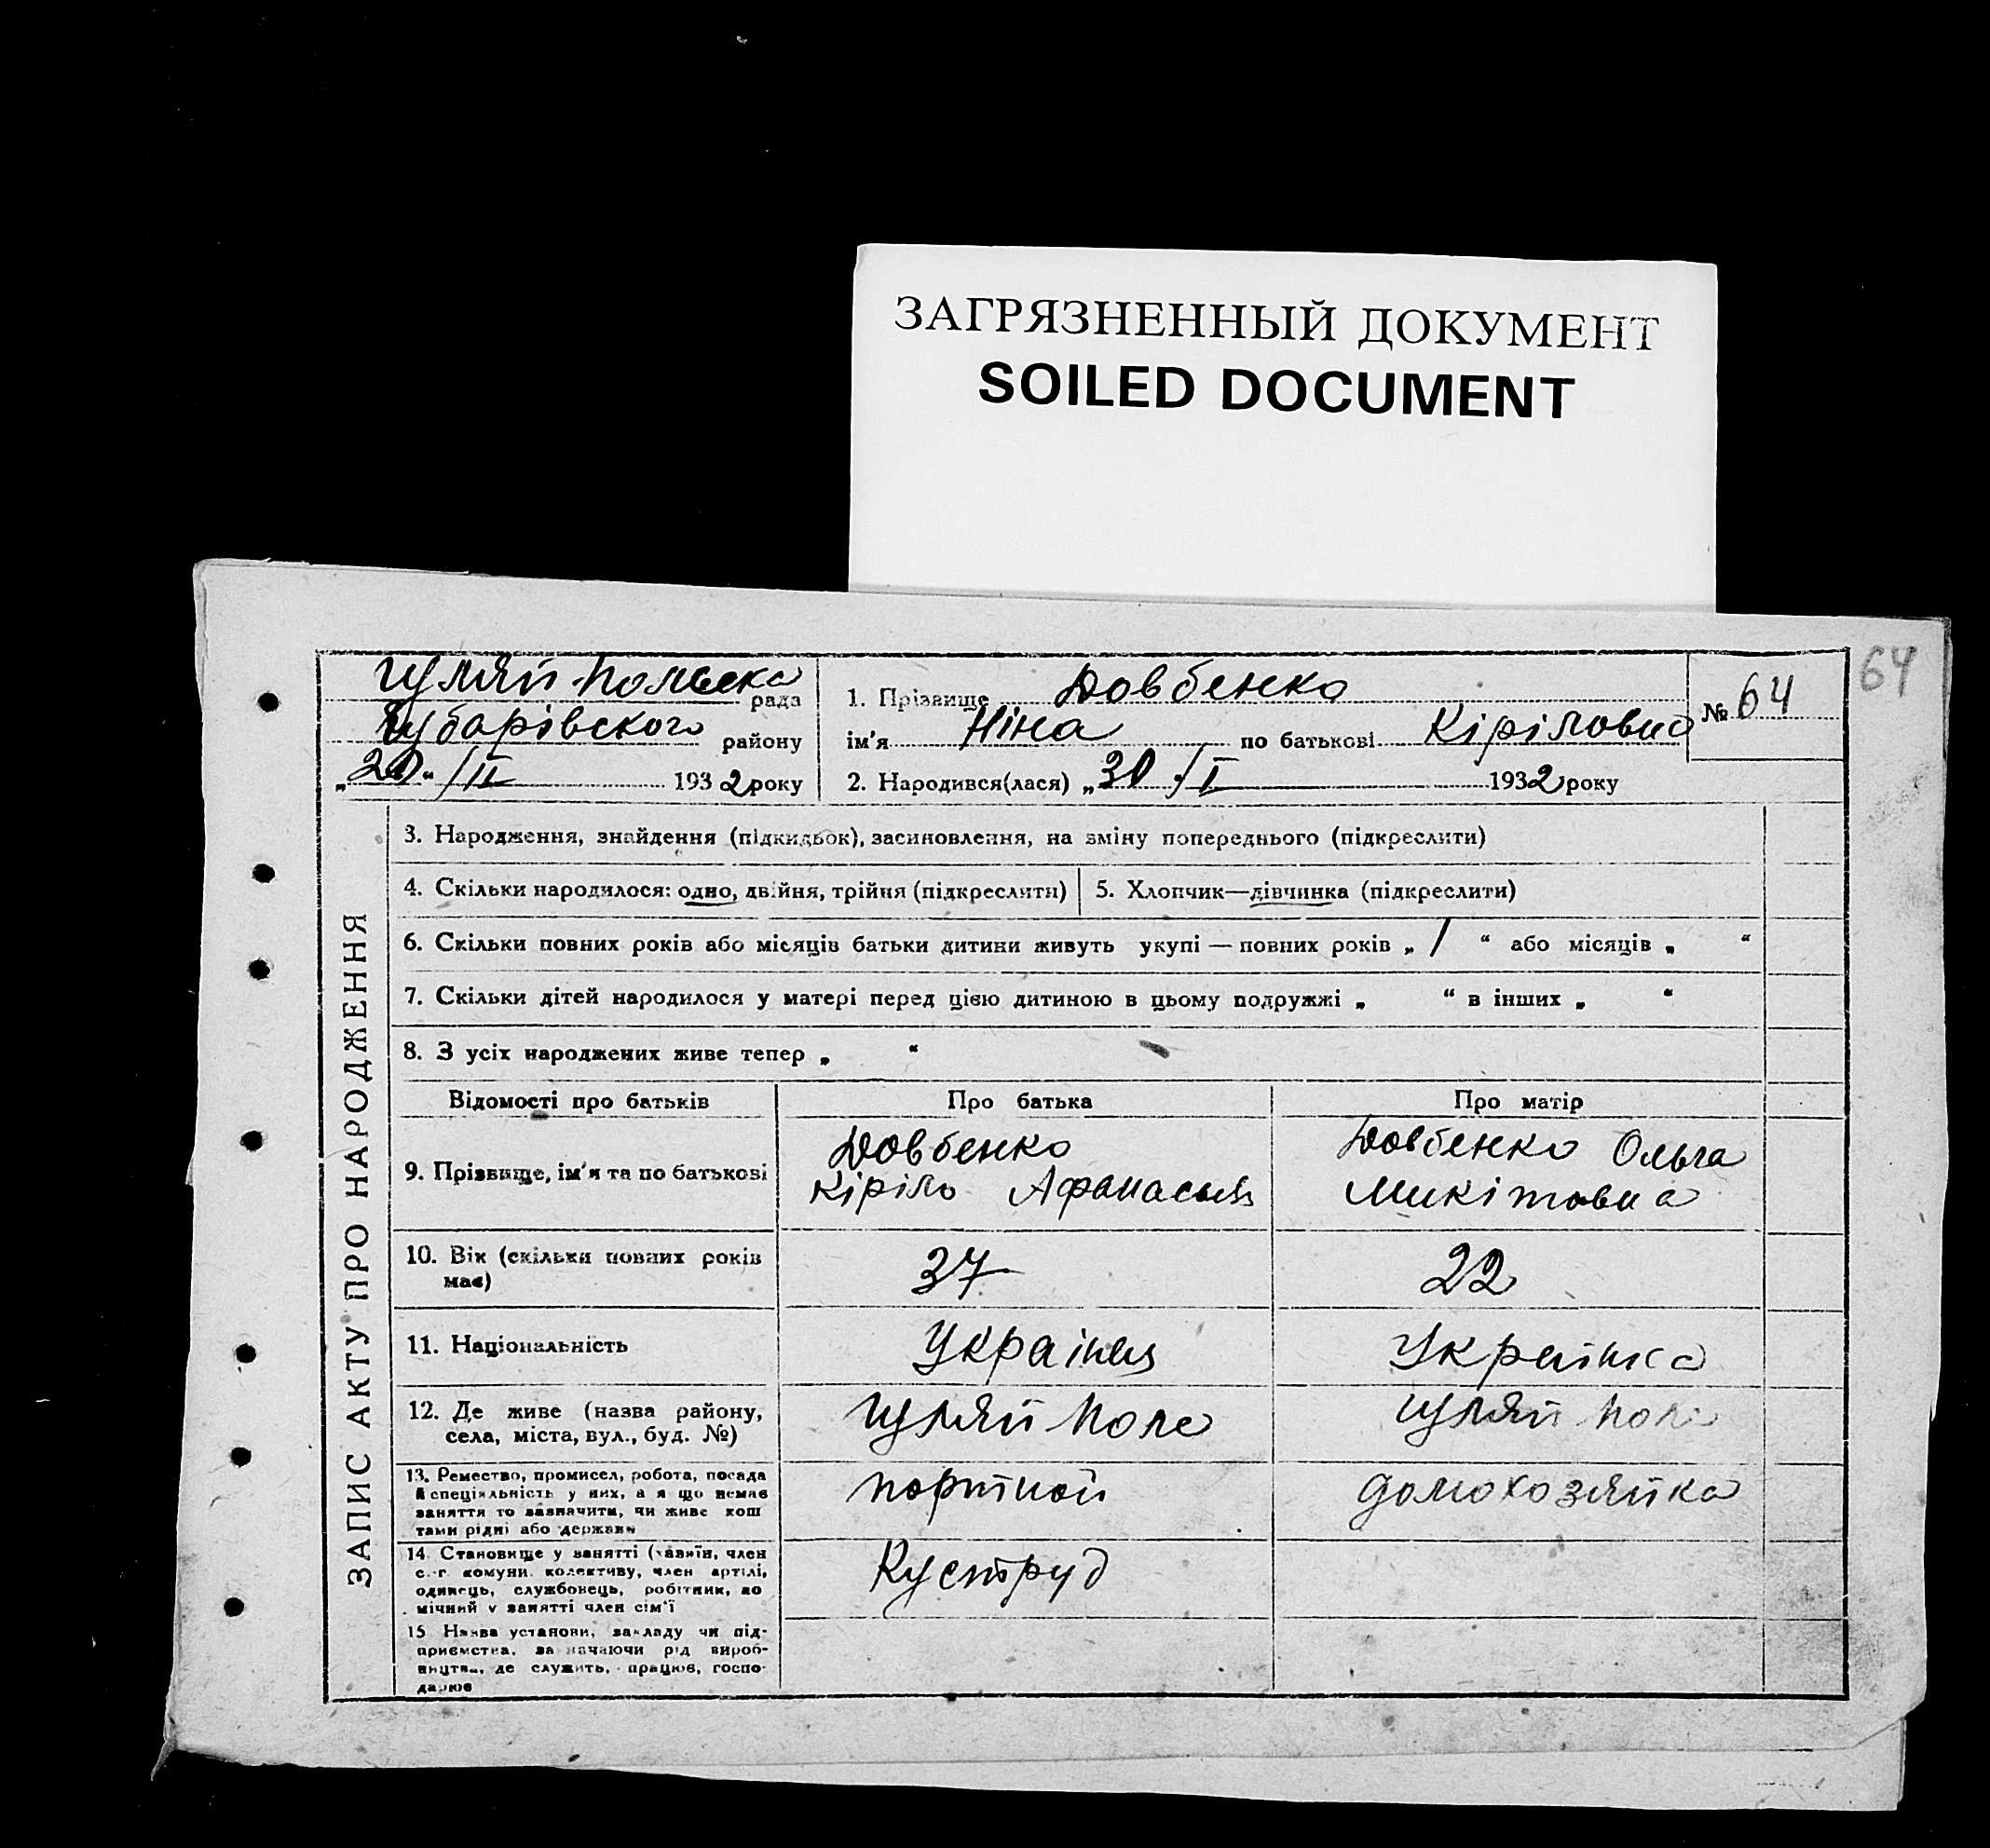 ЗАГРЯЗНЕННЫЙ ДОКУМЕНТ
SOILED DOCUMENT
64
Гуляй-Польська рада
Чубарівского району
„20“/II 1932 року
1. Прізвище Довбенко
ім'я Ніна по батькові Кіріловна
2. Народився(лася) „30“/I 1932 року
№ 64
ЗАПИС АКТУ ПРО НАРОДЖЕННЯ
3. Народження, знайдення (підкидьок), засиновлення, на зміну попереднього (підкреслити)
4. Скільки народилося: одно, двійня, трійня (підкреслити)
5. Хлопчик—дівчинка (підкреслити)
6. Скільки повних років або місяців батьки дитини живуть укупі — повних років „ / “ або місяців „ “
7. Скільки дітей народилося у матері перед цією дитиною в цьому подружжі „ “ в інших „ “
8. З усіх народжених живе тепер „ “
Відомості про батьків
Про батька
Про матір
9. Прізвище, ім'я та по батькові
Довбенко
Кіріло Афанасьев
Довбенко Ольга
Микітовна
10. Вік (скільки повних років
має)
37
22
11. Національність
Украінец
Украінка
12. Де живе (назва району,
села, міста, вул., буд. №)
Гуляй Поле
Гуляй Поле
13. Ремество, промисел, робота, посада
й спеціяльність у них, а я що немає
заняття то зазначити, чи живе кош
тами рідні або держави
портной
домохозяйка
14. Становище у занятті (хазяїн, член
с.-г. комуни, колективу, член артілі,
одинець, службовець, робітник, по
мічний у занятті член сім'ї
Куструд
15 Назва установи, закладу чи під-
приємства, зазначаючи рід вироб-
ництва, де служить, працює, госпо-
дарює